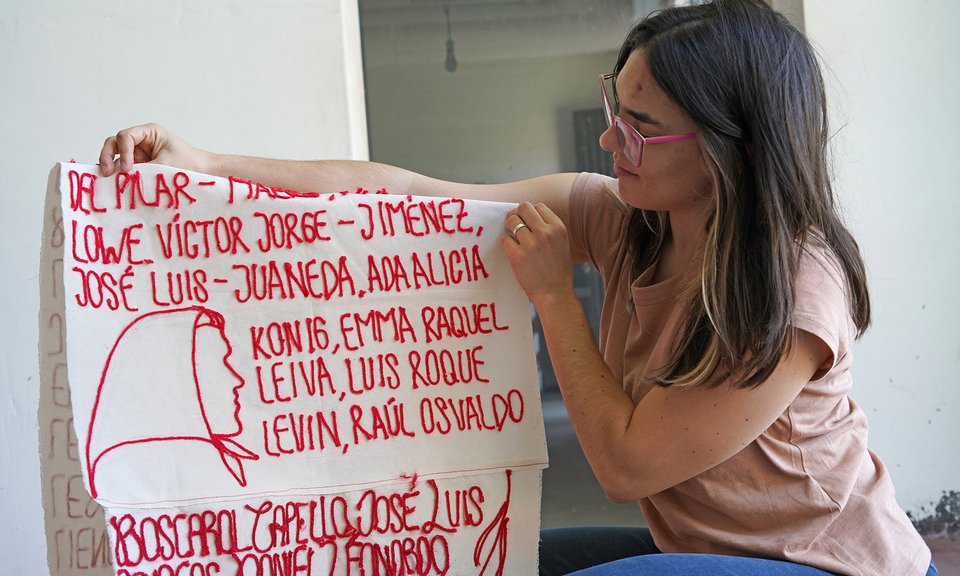 DEL PILAR -
LOWE, VÍCTOR JORGE - JIMÉNEZ,
JOSÉ LUIS - JUANEDA, ADA ALICIA
KONIG, EMMA RAQUEL
LEIVA, LUIS ROQUE
LEVIN, RAÚL OSVALDO
BOSCAROL CAPELLO, JOSÉ LUIS
LEONARDO